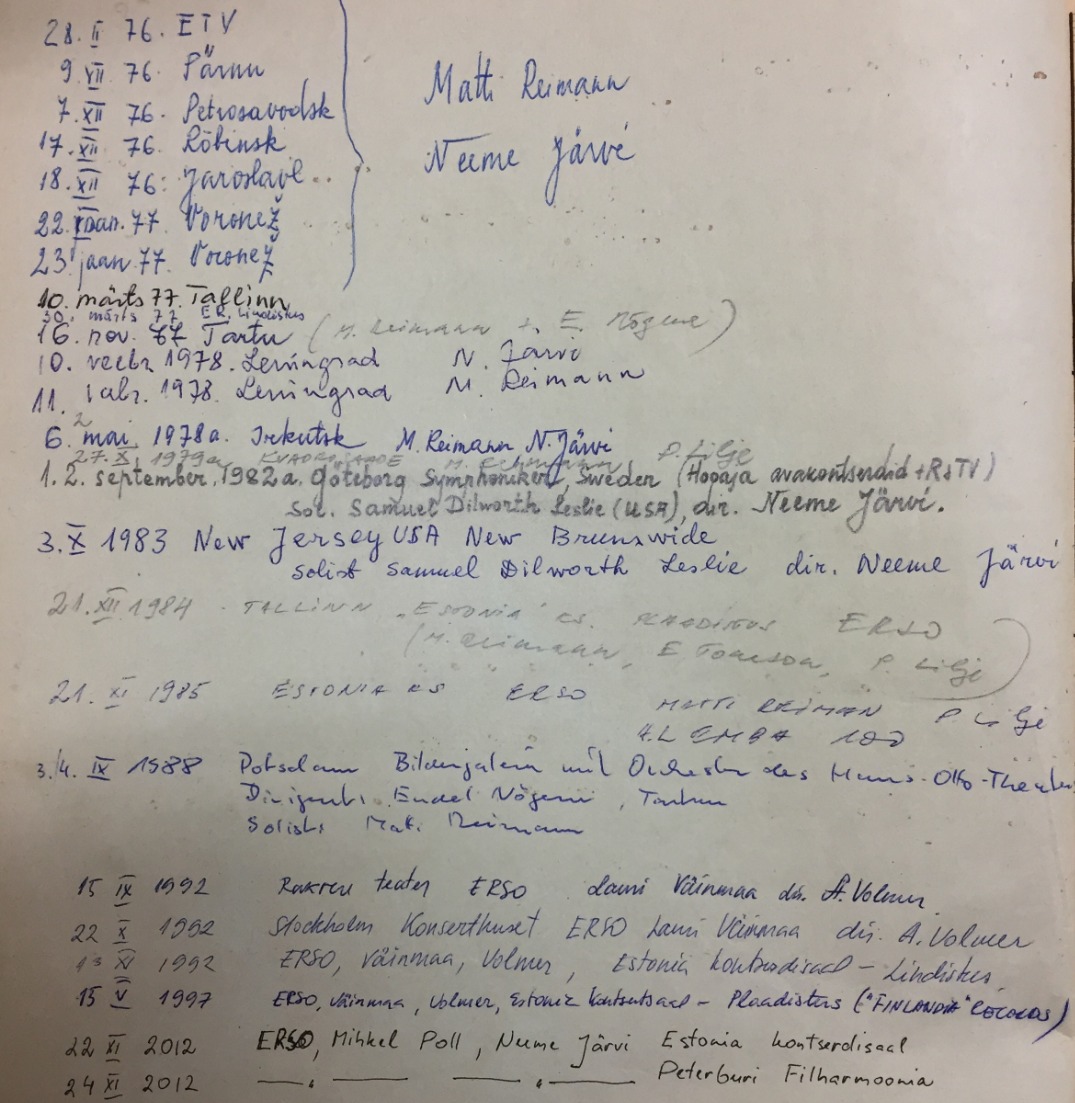 28. II 76. ETV
9. VII 76. Pärnu
7. XII 76. Petrosavodsk
17. XII 76. Rõbinsk
18. XII 76. Jaroslavl
Matti Reimann
Neeme Järvi
22. jaan. 77. Voronež
23. jaan 77. Voronež
10. märts 77. Tallinn
30. märts 77 ER. Lindistus
16. nov. 77 Tartu (M. Reimann E. Nõgene)
10. 1978. Leningrad N. Järvi
11. 1978. Leningrad M. Reimann
6. mai 1978a. Irkutsk M. Reimann N. Järvi
27. X 1979a M. Reimann, P. Lilje
1. 2. september. 1982a. Göteborg Symphonikers, Sweden (Hooaja avakontserdid + R&TV)
Sol. Samuel Dilworth Leslie (USA), dir. Neeme Järvi.
3. X 1983 New Jersey USA New Brunswide
Solist Samuel Dilworth Leslie dir. Neeme Järvi
21. XII 1984 TALLINN "ESTONIA" KS. PLAADISTUS ERSO
(M. Reimann, E Tomson, P. Lilje)
21. XI 1985 ESTONIA KS ERSO MATTI REIMAN P. Lilje
A. LEMBA 100
3./4. IX 1988 Potsdam Bildergalerie mit Orchester des Hans-Otto-Theaters
Dirigent: Endel Nõgene, Tartu
Solist: Reimann
15 IX 1992 Rakvere teater ERSO Lauri Väinmaa dir. A. Volmer
22 X 1992 Stockholm Konserthuset ERSO Lauri Väinmaa dir. A. Volmer
13 XI 1992 ERSO, Väinmaa, Volmer, Estonia kontserdisaal – Lindistus
15 V 1997 ERSO, Väinmaa, Volmer, Estonia kontsertsaal – Plaadistus ("FINLANDIA" RECORDS)
22 XI 2012 ERSO, Mihkel Poll, Neeme Järvi Estonia kontserdisaal
24 XI 2012 —„— —„— Peterburi Filharmoonia